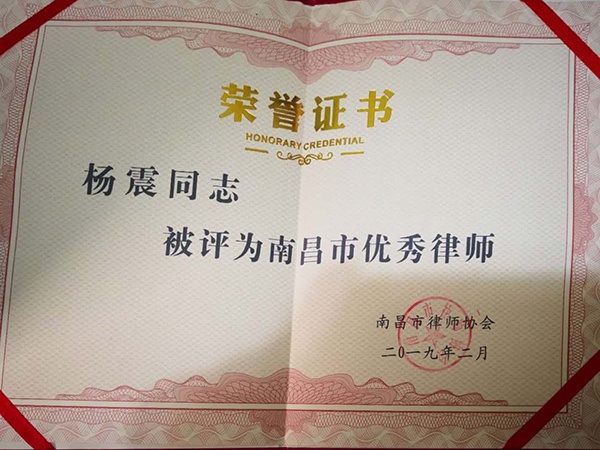 荣誉证书
HONORARY CREDENTIAL
杨震同志
被评为南昌市优秀律师
南昌市律师协会
二〇一九年二月